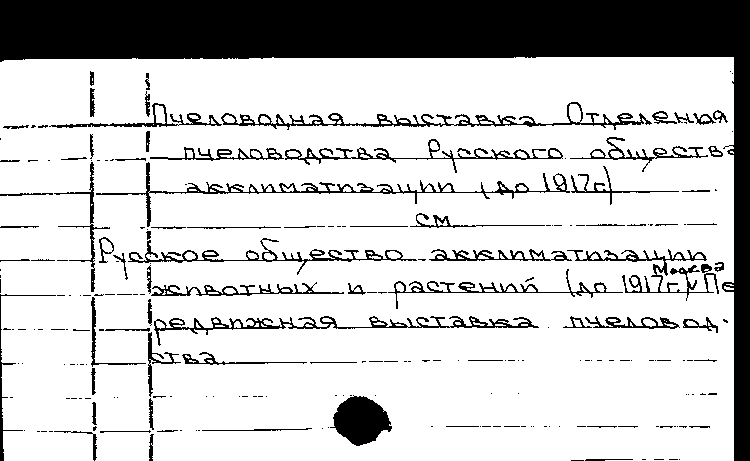 Пчеловодная выставка Отделения
пчеловодства Русского общества
акклиматизации (до 1917г)
см
Русское общество акклиматизации
Москва
животных и растений (до 1917г.) Пе
редвижная выставка пчеловод-
ства.